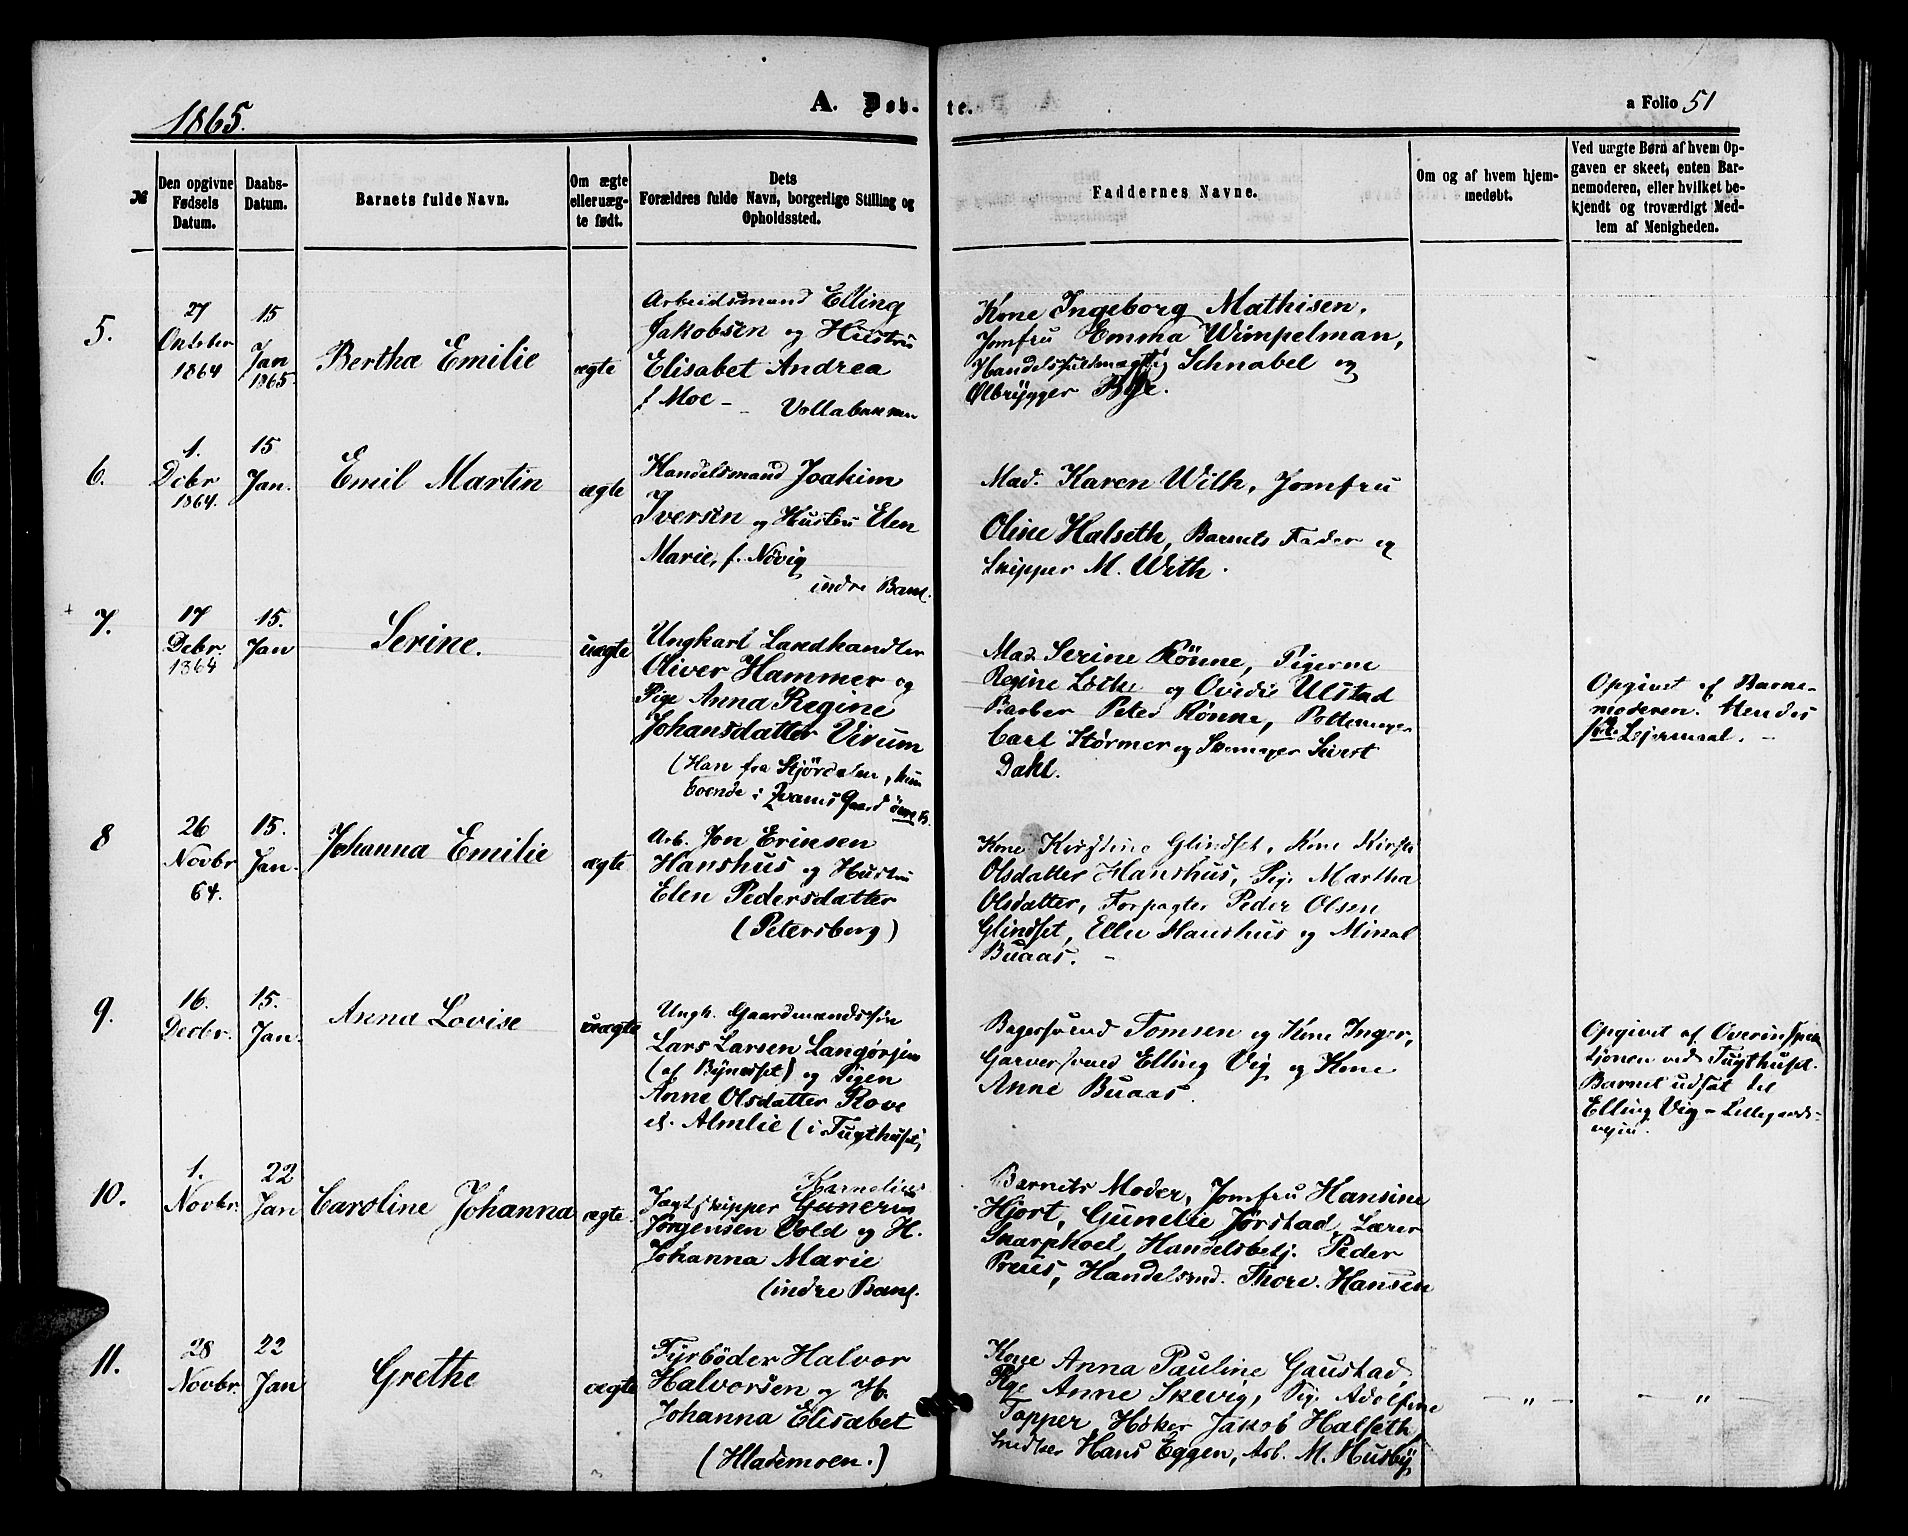 1865.
A. Døb-
te.
a Folio 51
№
Den opgivne
Fødsels
Datum.
Daabs-
Datum.
Barnets fulde Navn.
Om ægte
eller uæg-
te født.
Dets
Forældres fulde Navn, borgerlige Stilling og
Opholdssted.
Faddernes Navne.
Om og af hvem hjem-
medøbt.
Ved uægte Børn af hvem Op-
gaven er skeet, enten Bar-
nemoderen, eller hvilket be-
kjendt og troværdigt Med-
lem af Menigheden.
5.
27
Oktober
1864
15
Jan
1865.
Bertha Emilie
ægte
Arbeidsmand Elling
Jakobsen og Hustru
Elisabet Andrea
f Moe - Vollabakken
Kone Ingeborg Mathisen,
Jomfru Emma Wimpelman,
Handelsfuldmægtig Schnabel og
Ølbrygger Bye.
6.
1.
Dcbr
1864.
15
Jan.
Emil Martin
ægte
Handelsmand Joakim
Iversen og Hustru Elen
Marie, f. Növig
indre Bakl.
Mad. Karen With, Jomfru
Oline Halseth, Barnets Fader og
Skipper M. With.
7.
17
Debr.
1864
15.
Jan
Serine.
uægte
Ungkarl Landhandler
Oliver Hammer og
Pige Anna Regine
Johansdatter Virum
(Han fra Stjördalen, hun
boende i Gaard övre B.
Mad. Serine Rönne, Pigerne
Regine og Ulstad
Barber Peter Rönne,
Carl Størmer og Sivert
Dahl.
Opgivet af Barne-
moderen. Hendes
Leiermaal. -
8
26
Novbr
64.
15.
Jan.
Johanna Emilie
ægte
Arb. Jon Erinsen
Hanshus og Hustru
Elen Pedersdatter
(Petersborg)
Kone Kirstine Glindset, Kone Kirsti
Olsdatter Hanshus, Pige Martha
Olsdatter, Forpagter Peder Olsen
Glindset, Hanshus og Mikal
Buaas. -
9.
16.
Decbr.
15.
Jan.
Anna Lovise
uægte
Ungk. Gaardmandssøn
Lars Larsen Langørjen
(af Bynesset) og Pigen
Anne Olsdatter Rove
el. Almlie (i Tugthuset)
Bagersvend Tomsen og Kone Inger,
Garversvend Elling Vig og Kone
Anne Buaas.
Opgivet af Overinspek
tionen ved Tugthuset.
Barnet udsat til
Elling Vig - Lillegaards-
veien.
10.
1.
Novbr.
22
Jan
Caroline Johanna
ægte.
Kornelius
Jagtskipper Gunerius
Jørgensen Vold og H.
Johanna Marie
(indre Bakl.
Barnets Moder, Jomfru Hansine
Hjort, Gunelie Jørstad, Lærer
Handelsbetj. Peder
Preus, Handelsmd. Thore. Hansen
11.
28
Novbr.
22
Jan
Grethe
ægte
Fyrböder Halvor
Halvorsen og H.
Johanna Elisabet
(Hlademoen.)
Kone Anna Pauline Gaustad
Pige Anne Skevig, Pige Adolfine
Tapper, Høker Jakob Halseth,
Snedker Hans Eggen, Arb. M. Husby,
- " -
- "